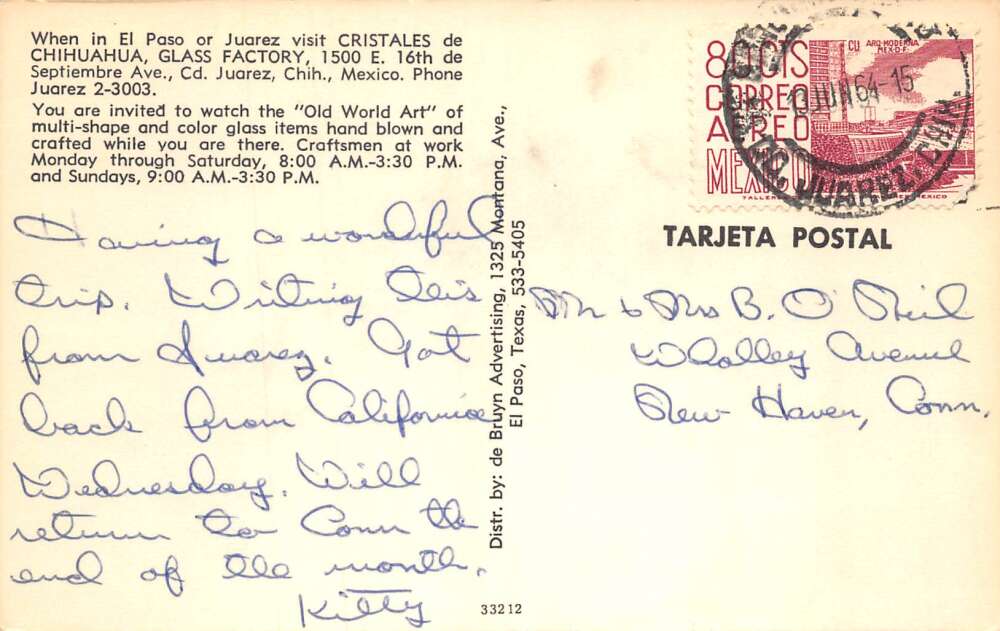 When in El Paso or Juarez visit CRISTALES de
CHIHUAHUA, GLASS FACTORY, 1500 E. 16th de
Septiembre Ave., Cd. Juarez, Chih., Mexico. Phone
Juarez 2-3003.
You are invited to watch the "Old World Art" of
multi-shape and color glass items hand blown and
crafted while you are there. Craftsmen at work
Monday through Saturday, 8:00 A.M.-3:30 P.M.
and Sundays, 9:00 A.M.-3:30 P.M.
Having a wonderful
trip. Writing this
from Juarez. Got
back from California
Wednesday. Will
return to Conn the
end of the month.
Kitty
Distr. by: de Bruyn Advertising, 1325 Montana, Ave.,
El Paso, Texas, 533-5405
33212
80 CTS
CORREO
AEREO
MEXICO
CU ARQ-MODERNA
MEX-D.F.
JUN 64-15
JUAREZ, CHIH
TARJETA POSTAL
Mr & Mrs B. O'Neil
Whalley Avenue
New Haven, Conn.